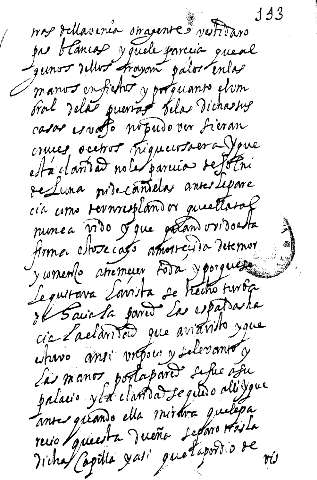 133
tras della venia otra gente vestida ro
pas blancas y que le parecia que al
gunos dellos trayan palos en las
manos enhiestos y por quanto el um
bral de las puertas de las dichas sus
casas es vaxo no pudo ver si eran
cruces o cetros ni que cosa era y que
esta claridad no les parecia de sol ni
de luna ni de candelas antes le pare
cia como de un resplandor que ella tal
nunca vido y que quando vido esta
forma estose caso amortecida de temor
y començo a tremer toda y porque se
le quitava la vista se hecho turba
da hacia la pared las espaldas ha
cia la claridad que avia visto y que
estuvo ansi un poco y se levanto y
las manos por la pared se fue a su
palacio y la claridad se quedo alli y que
antes quando ella mirava que le pa
recio questa dueña se paro tras la
dicha capilla y asi que la perdio de
vis